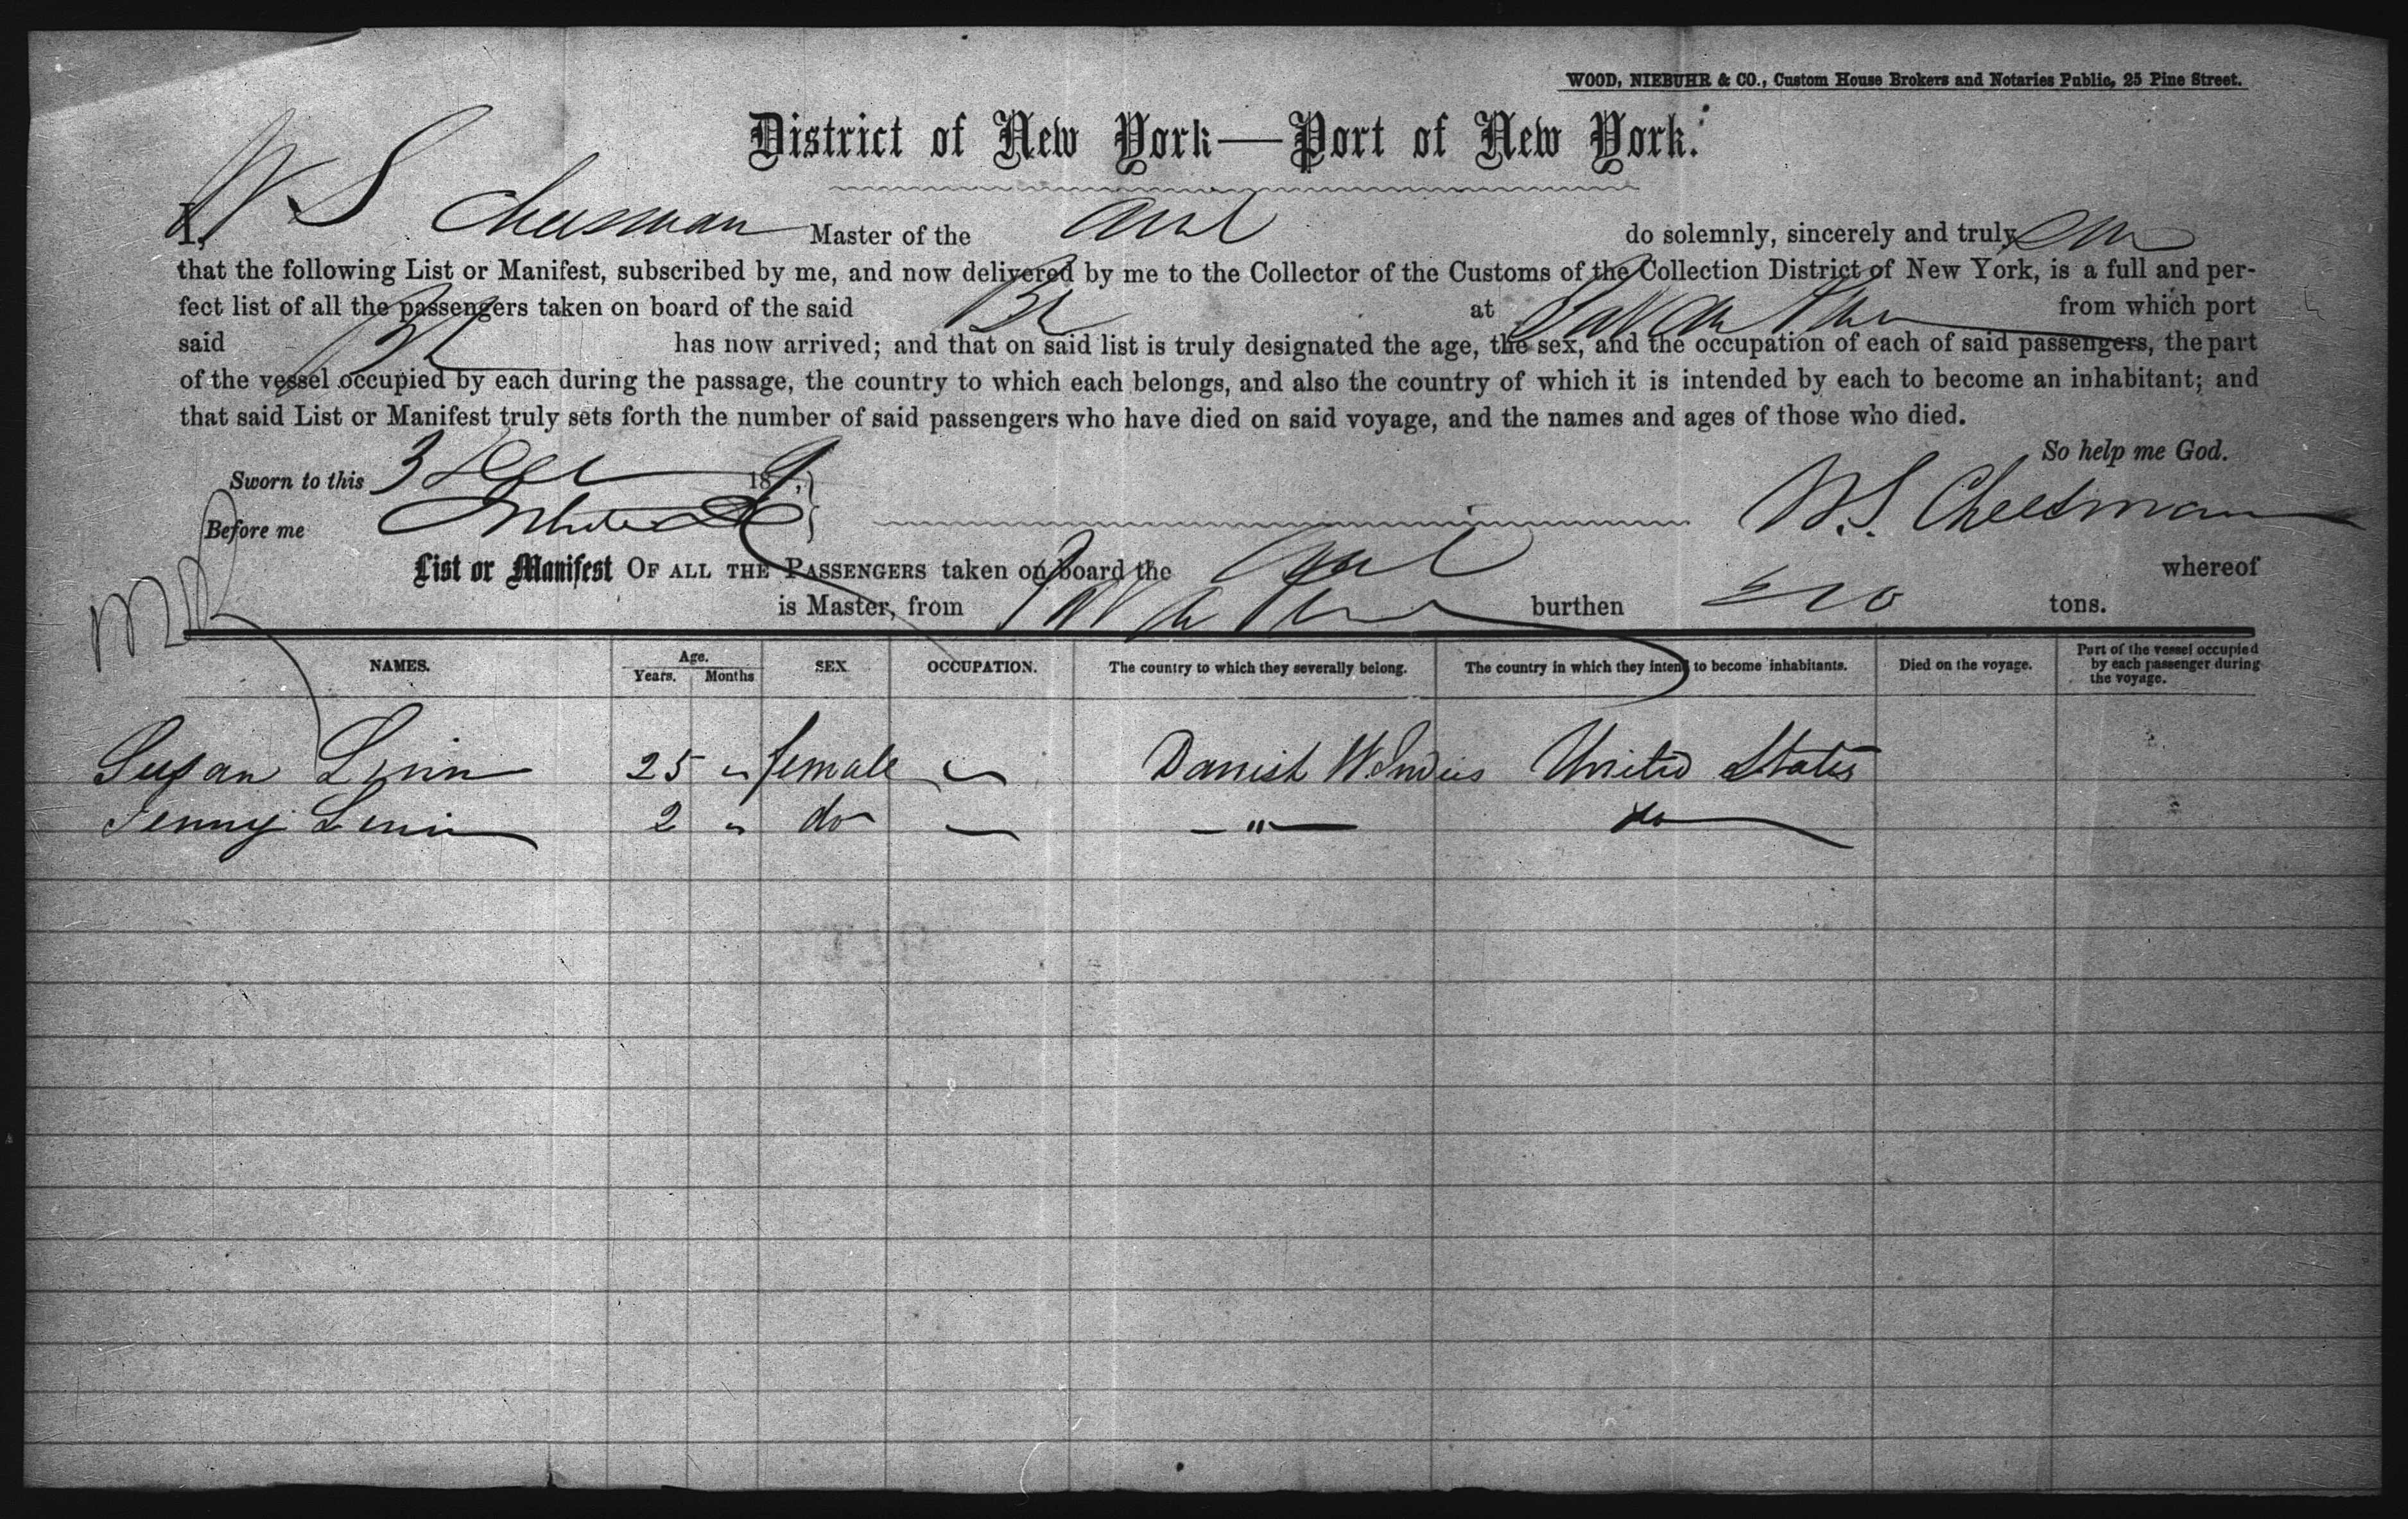 WOOD, NIEBUHR & CO., Custom House Brokers and Notaries Public, 25 Pine Street.
District of New York—Port of New York.
I, W S Cheesman Master of the do solemnly, sincerely and truly
that the following List or Manifest, subscribed by me, and now delivered by me to the Collector of the Customs of the Collection District of New York, is a full and per-
fect list of all the passengers taken on board of the said at from which port
said has now arrived; and that on said list is truly designated the age, the sex, and the occupation of each of said passengers, the part
of the vessel occupied by each during the passage, the country to which each belongs, and also the country of which it is intended by each to become an inhabitant; and
that said List or Manifest truly sets forth the number of said passengers who have died on said voyage, and the names and ages of those who died.
So help me God.
Sworn to this 3 189
Before me W.S. Cheesman
List or Manifest OF ALL THE PASSENGERS taken on board the whereof
is Master, from burthen tons.
NAMES. Age. Years. Months SEX OCCUPATION. The country to which they severally belong. The country in which they intend to become inhabitants. Died on the voyage. Part of the vessel occupied by each passenger during the voyage.
Susan Linin 25 " female — Danish W. Indies United States
Jenny Linin 2 " do — — " — do